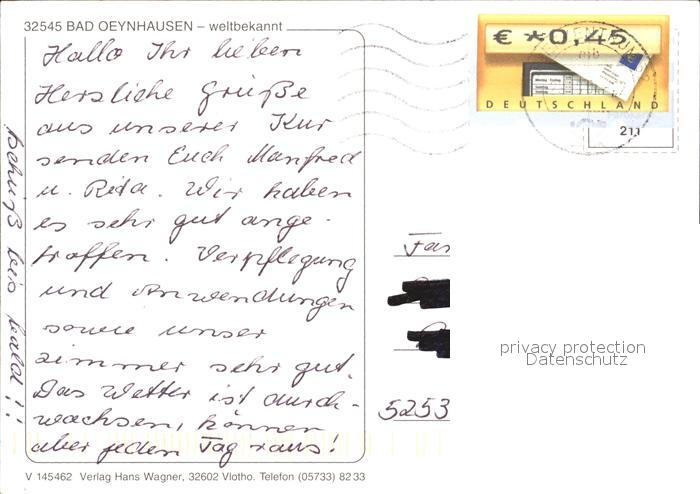 32545 BAD OEYNHAUSEN – weltbekannt
Hallo Ihr lieben
Herzliche Grüße
aus unserer Kur
senden Euch Manfred
u. Rita. Wir haben
es sehr gut ange-
troffen. Verpflegung
und Anwendungen
sowie unser
Zimmer sehr gut.
Das Wetter ist durch-
wachsen, können
aber jeden Tag raus!
tschüß bis bald!!
€ *0,45
DEUTSCHLAND
211
Fan
5253
privacy protection
Datenschutz
V 145462 Verlag Hans Wagner, 32602 Vlotho. Telefon (05733) 8233